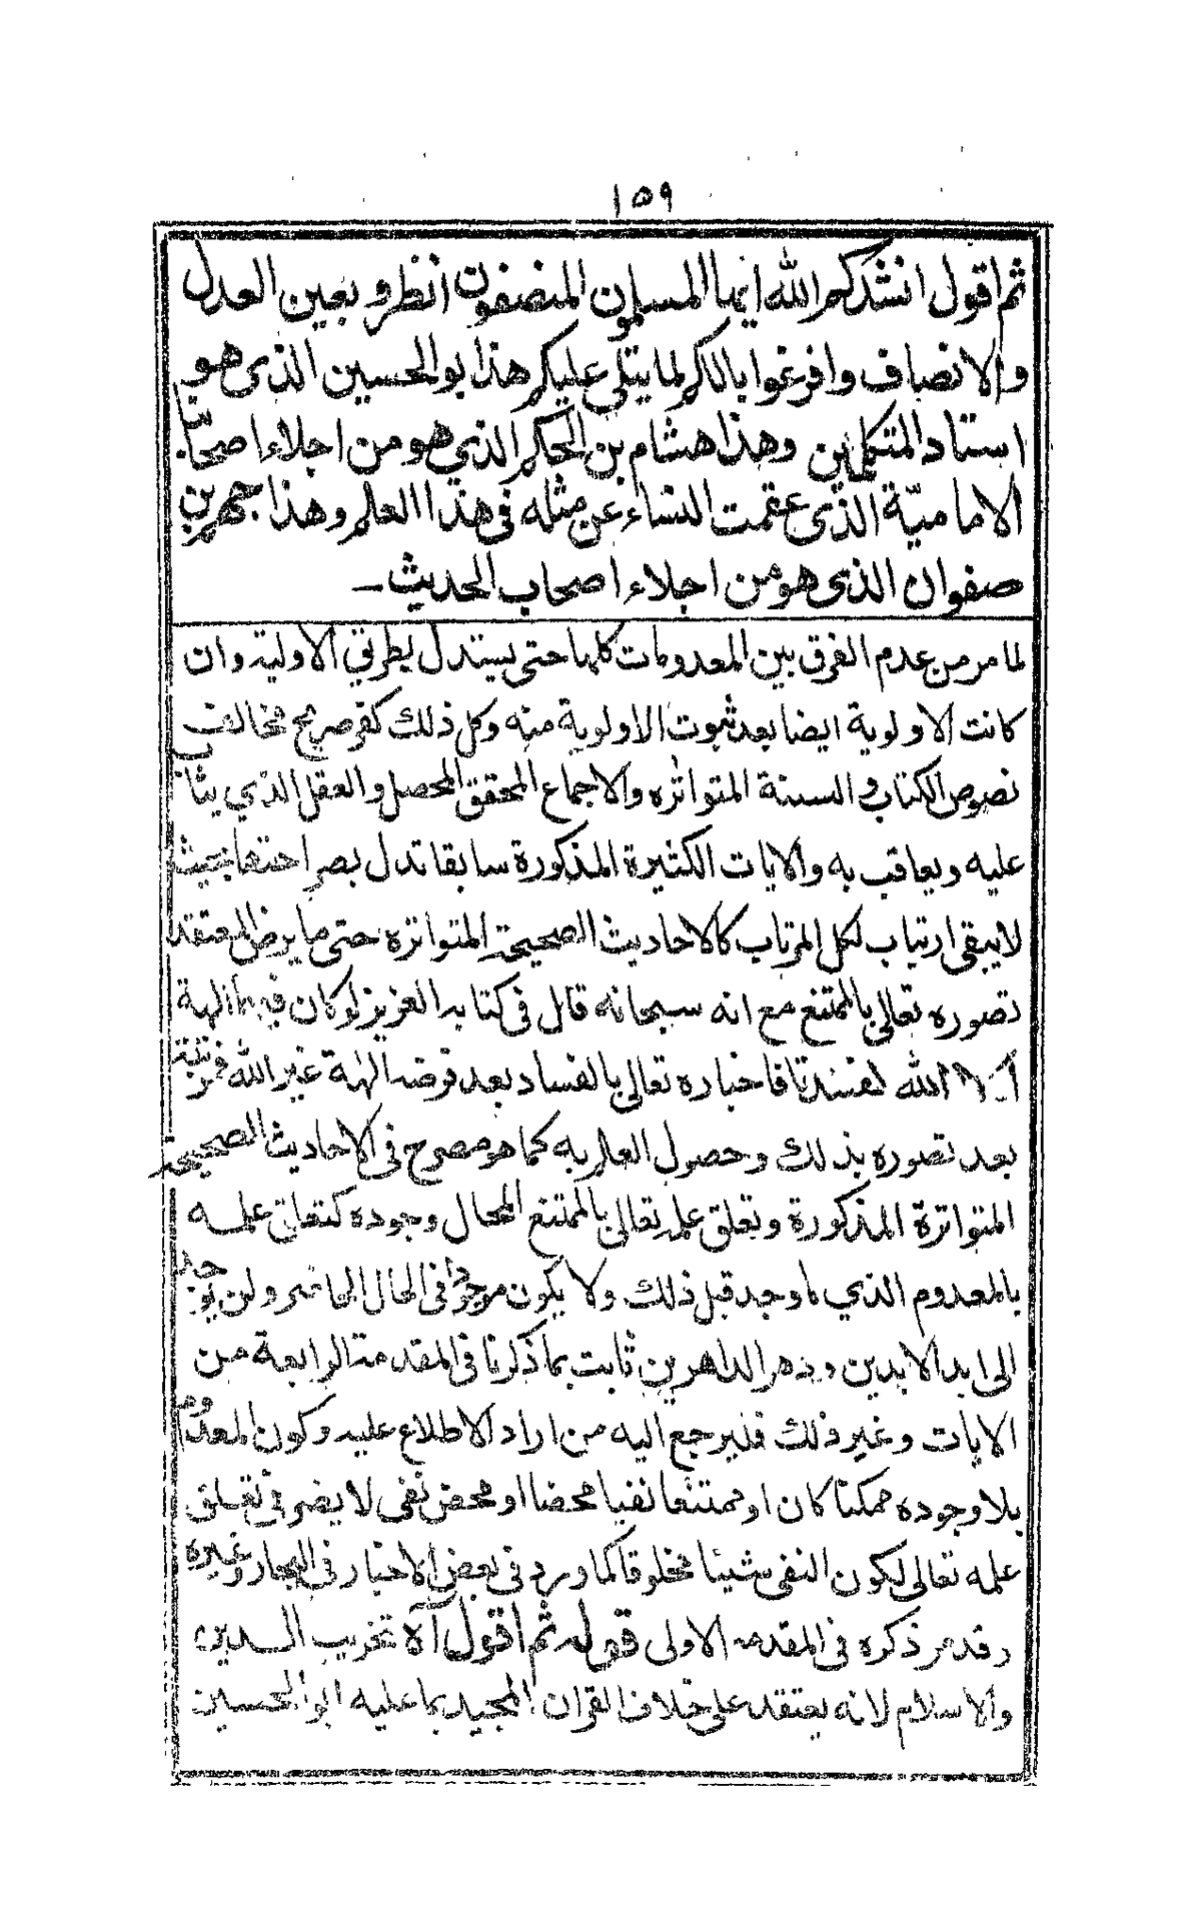 ١٥٩
ثم اقول انشدكم الله ايها المسلمون المنصفون انظروا بعين العدل
والانصاف وافرغوا بالكم لما يتلى عليكم هذا ابو الحسين الذى هو
استاد المتكلمين وهذا هشام بن الحكم الذي هو من اجلاء اصحابنا
الامامية الذى عقمت النساء عن مثله فى هذا العلم وهذا جهم بن
صفوان الذى هو من اجلاء اصحاب الحديث ـ
لما مر من عدم الفرق بين المعدومات كلها حتى يستدل بطريق الاولية وان
كانت الاولوية ايضا بعد ثبوت الاولوية منه وكل ذلك كفر صريح مخالف
نصوص الكتاب والسنة المتواتره والاجماع المحقق المحصل والعقل الذي يثاب
عليه ويعاقب به والايات الكثيرة المذكورة سابقا تدل بصراحتها بحيث
لا يبقى ارتياب لكل المرتاب كالاحاديث الصحيحة المتواتره حتى ما يرض المعتقد
تصوره تعالى بالممتنع مع انه سبحانه قال فى كتابه العزيز لو كان فيهما الهة
الا الله لفسدتا فاخباره تعالى بالفساد بعد فرضه الهة غير الله فمرتبته
بعد تصوره بذلك وحصول العلم به كما هو مصرح فى الاحاديث الصحيحة
المتواترة المذكورة وتعلق علمه تعالى بالممتنع المحال وجوده كتعلق علمه
بالمعدوم الذي ما وجد قبل ذلك ولا يكون موجودا فى الحال الحاضر ولن يوجد
الى ابد الابدين ودهر الداهرين ثابت بما ذكرنا فى المقدمة الرابعة من
الايات وغير ذلك فليرجع اليه من اراد الاطلاع عليه وكون المعدوم
بلا وجوده ممكنا كان او ممتنعا نفيا محضا او محض نفى لا يضر فى تعلق
علمه تعالى لكون النفى شيئا مخلوقا كما ورد فى بعض الاخبار فى البحار وغيره
وقد مر ذكره فى المقدمه الاولى قوله ثم اقول آه تخريب الدين
والاسلام لانه يعتقد على خلاف القران المجيد بما عليه ابو الحسين